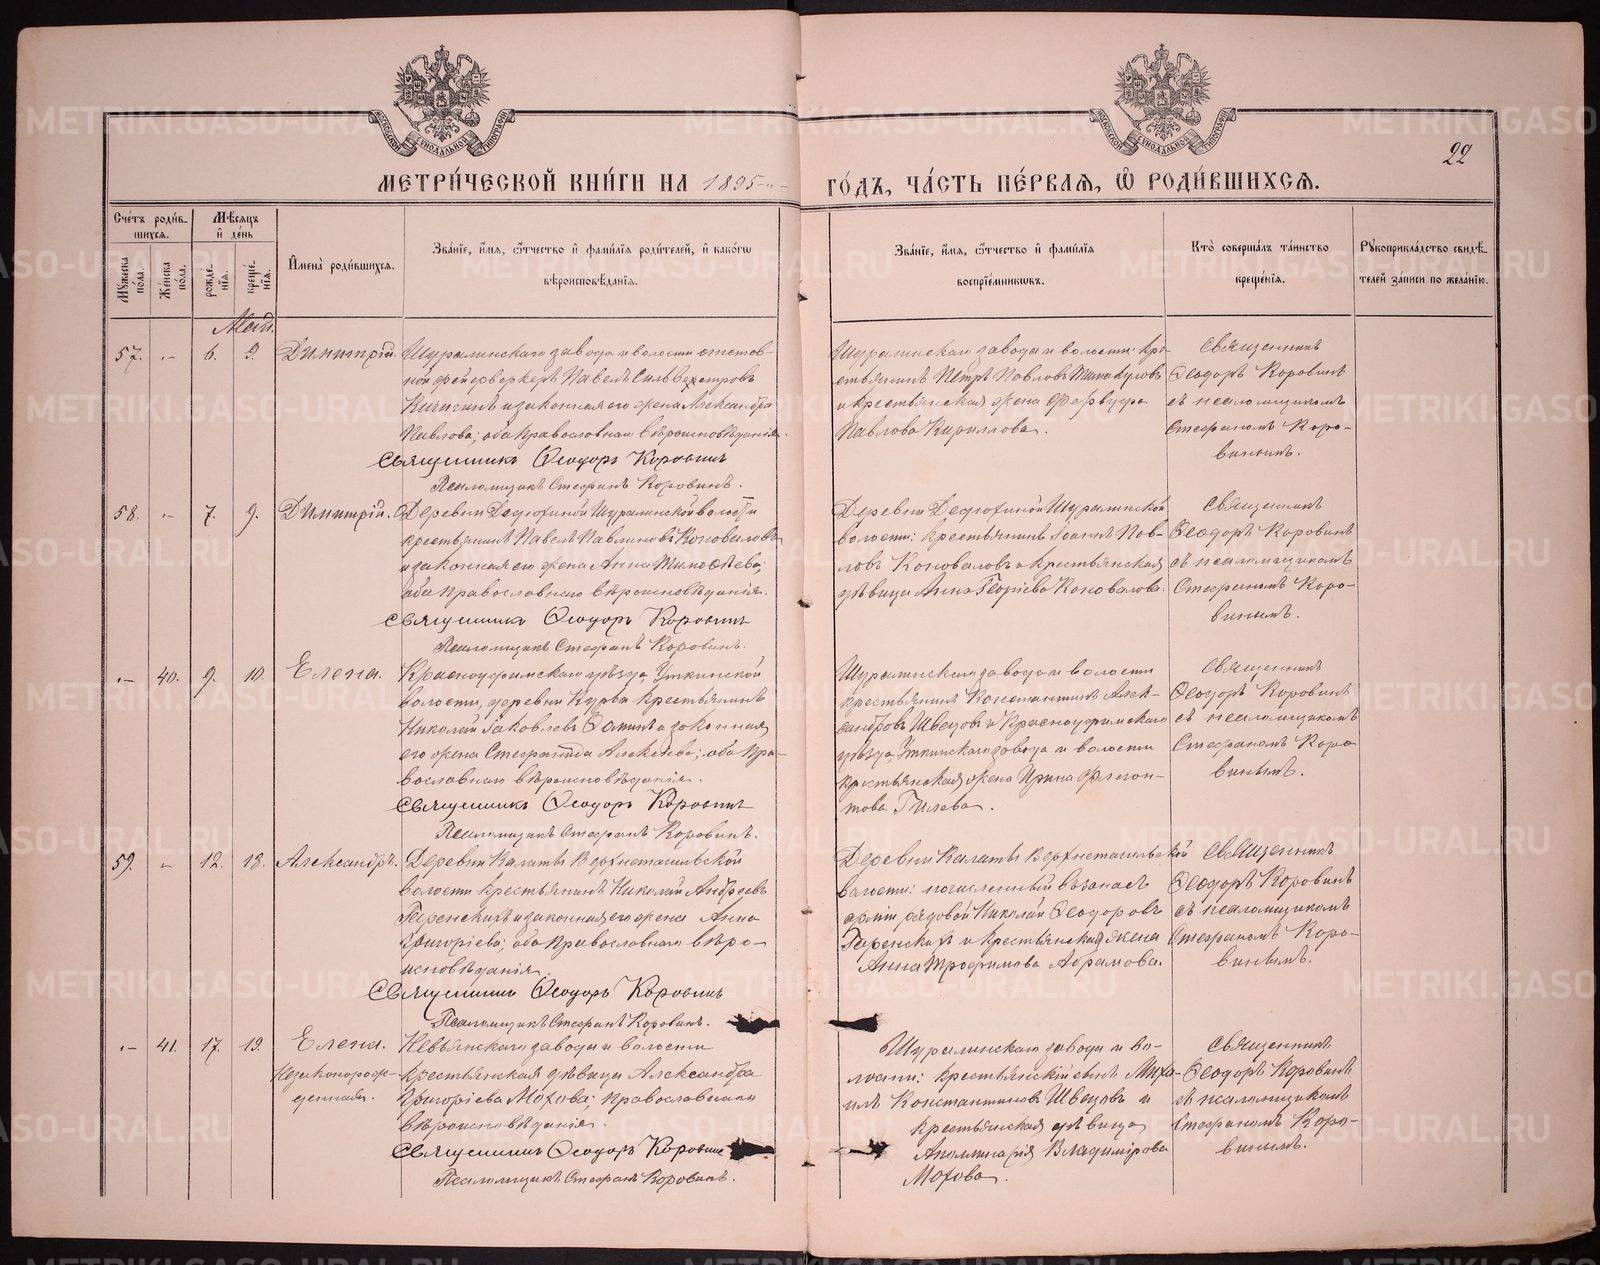 22
МЕТРИ́ЧЕСКОЙ КНИ́ГИ НА 1895-й ГО́ДЪ, ЧА́СТЬ ПЕ́РВАЯ, Ѡ РОДИ́ВШИХСЯ.
Сче́тъ роди́вшихся.
Мѣ́сяцъ и де́нь
Имена̀ роди́вшихся.
Зва́нїе, и́мя, ѻ́тчество и фами́лїя роди́телей, и како́гѡ
вѣроисповѣ́данїя.
Зва́нїе, и́мя, ѻ́тчество и фами́лїя
воспрїе́мникѡвъ.
Кто̀ соверша́лъ та́инство
креще́нїя.
Рꙋкоприкла́дство свидѣ́телей за́писи по жела́нїю.
Мꙋ́жеска по́ла.
Же́нска по́ла.
рожде́нїя.
креще́нїя.
Май.
57. -- 6. 9. Димитрій.
Шуралинскаго завода и волости отстав-
ной фейерверкеръ Павелъ Сильвестровъ
Кичигинъ и законная его жена Александра
Павлова; оба православнаго вѣроисповѣданія.
Священникъ Ѳеодоръ Коровинъ
Псаломщикъ Стефанъ Коровинъ.
Шуралинскаго завода и волости: кре-
стьянинъ Петръ Павловъ
и крестьянская жена
Павлова Кириллова.
Священникъ
Ѳеодоръ Коровинъ
съ псаломщикомъ
Стефаномъ Коро-
винымъ.
58. -- 7. 9. Димитрій.
Деревни Дедюхиной Шуралинской волости
крестьянинъ Павелъ Павлиновъ Коноваловъ
и законная его жена Анна Тимоѳѣева;
оба православнаго вѣроисповѣданія.
Священникъ Ѳеодоръ Коровинъ
Псаломщикъ Стефанъ Коровинъ.
Деревни Дедюхиной Шуралинской
волости: крестьянинъ Іоаннъ Пав-
ловъ Коноваловъ и крестьянская
дѣвица Анна Георгіева Коновалова.
Священникъ
Ѳеодоръ Коровинъ
съ псаломщикомъ
Стефаномъ Коро-
винымъ.
-- 40. 9. 10. Елена.
Красноуфимскаго уѣзда, Уткинской
волости, деревни Курьи крестьянинъ
Николай Іаковлевъ и законная
его жена Стефанида Алексѣева; оба пра-
вославнаго вѣроисповѣданія.
Священникъ Ѳеодоръ Коровинъ
Псаломщикъ Стефанъ Коровинъ.
Шуралинскаго завода и волости
крестьянинъ Константинъ Алек-
сандровъ Швецовъ и Красноуфимскаго
уѣзда, Уткинскаго завода и волости
крестьянская жена Ирина Флегон-
това Гилева.
Священникъ
Ѳеодоръ Коровинъ
съ псаломщикомъ
Стефаномъ Коро-
винымъ.
59. -- 12. 13. Александръ.
Деревни Калаты Верхнетагильской
волости крестьянинъ Николай Андреевъ
Гаренскихъ и законная его жена Анна
Григорьева; оба православнаго вѣро-
исповѣданія.
Священникъ Ѳеодоръ Коровинъ
Псаломщикъ Стефанъ Коровинъ.
Деревни Калаты Верхнетагильской
волости: отчисленный въ запасъ
арміи рядовой Николай Ѳеодоровъ
Гаренскихъ и крестьянская жена
Анна Трофимова Абрамова.
Священникъ
Ѳеодоръ Коровинъ
съ псаломщикомъ
Стефаномъ Коро-
винымъ.
-- 41. 17. 19. Елена.
Незаконорож-
денная.
Невьянскаго завода и волости
крестьянская дѣвица Александра
Григоріева Мохова; православнаго
вѣроисповѣданія.
Священникъ Ѳеодоръ Коровинъ
Псаломщикъ Стефанъ Коровинъ.
Шуралинскаго завода и во-
лости: крестьянскій сынъ Миха-
илъ Константиновъ Швецовъ и
крестьянская дѣвица
Аполлинарія Владимірова
Мохова.
Священникъ
Ѳеодоръ Коровинъ
съ псаломщикомъ
Стефаномъ Коро-
винымъ.
METRIKI.GASO-URAL.RU